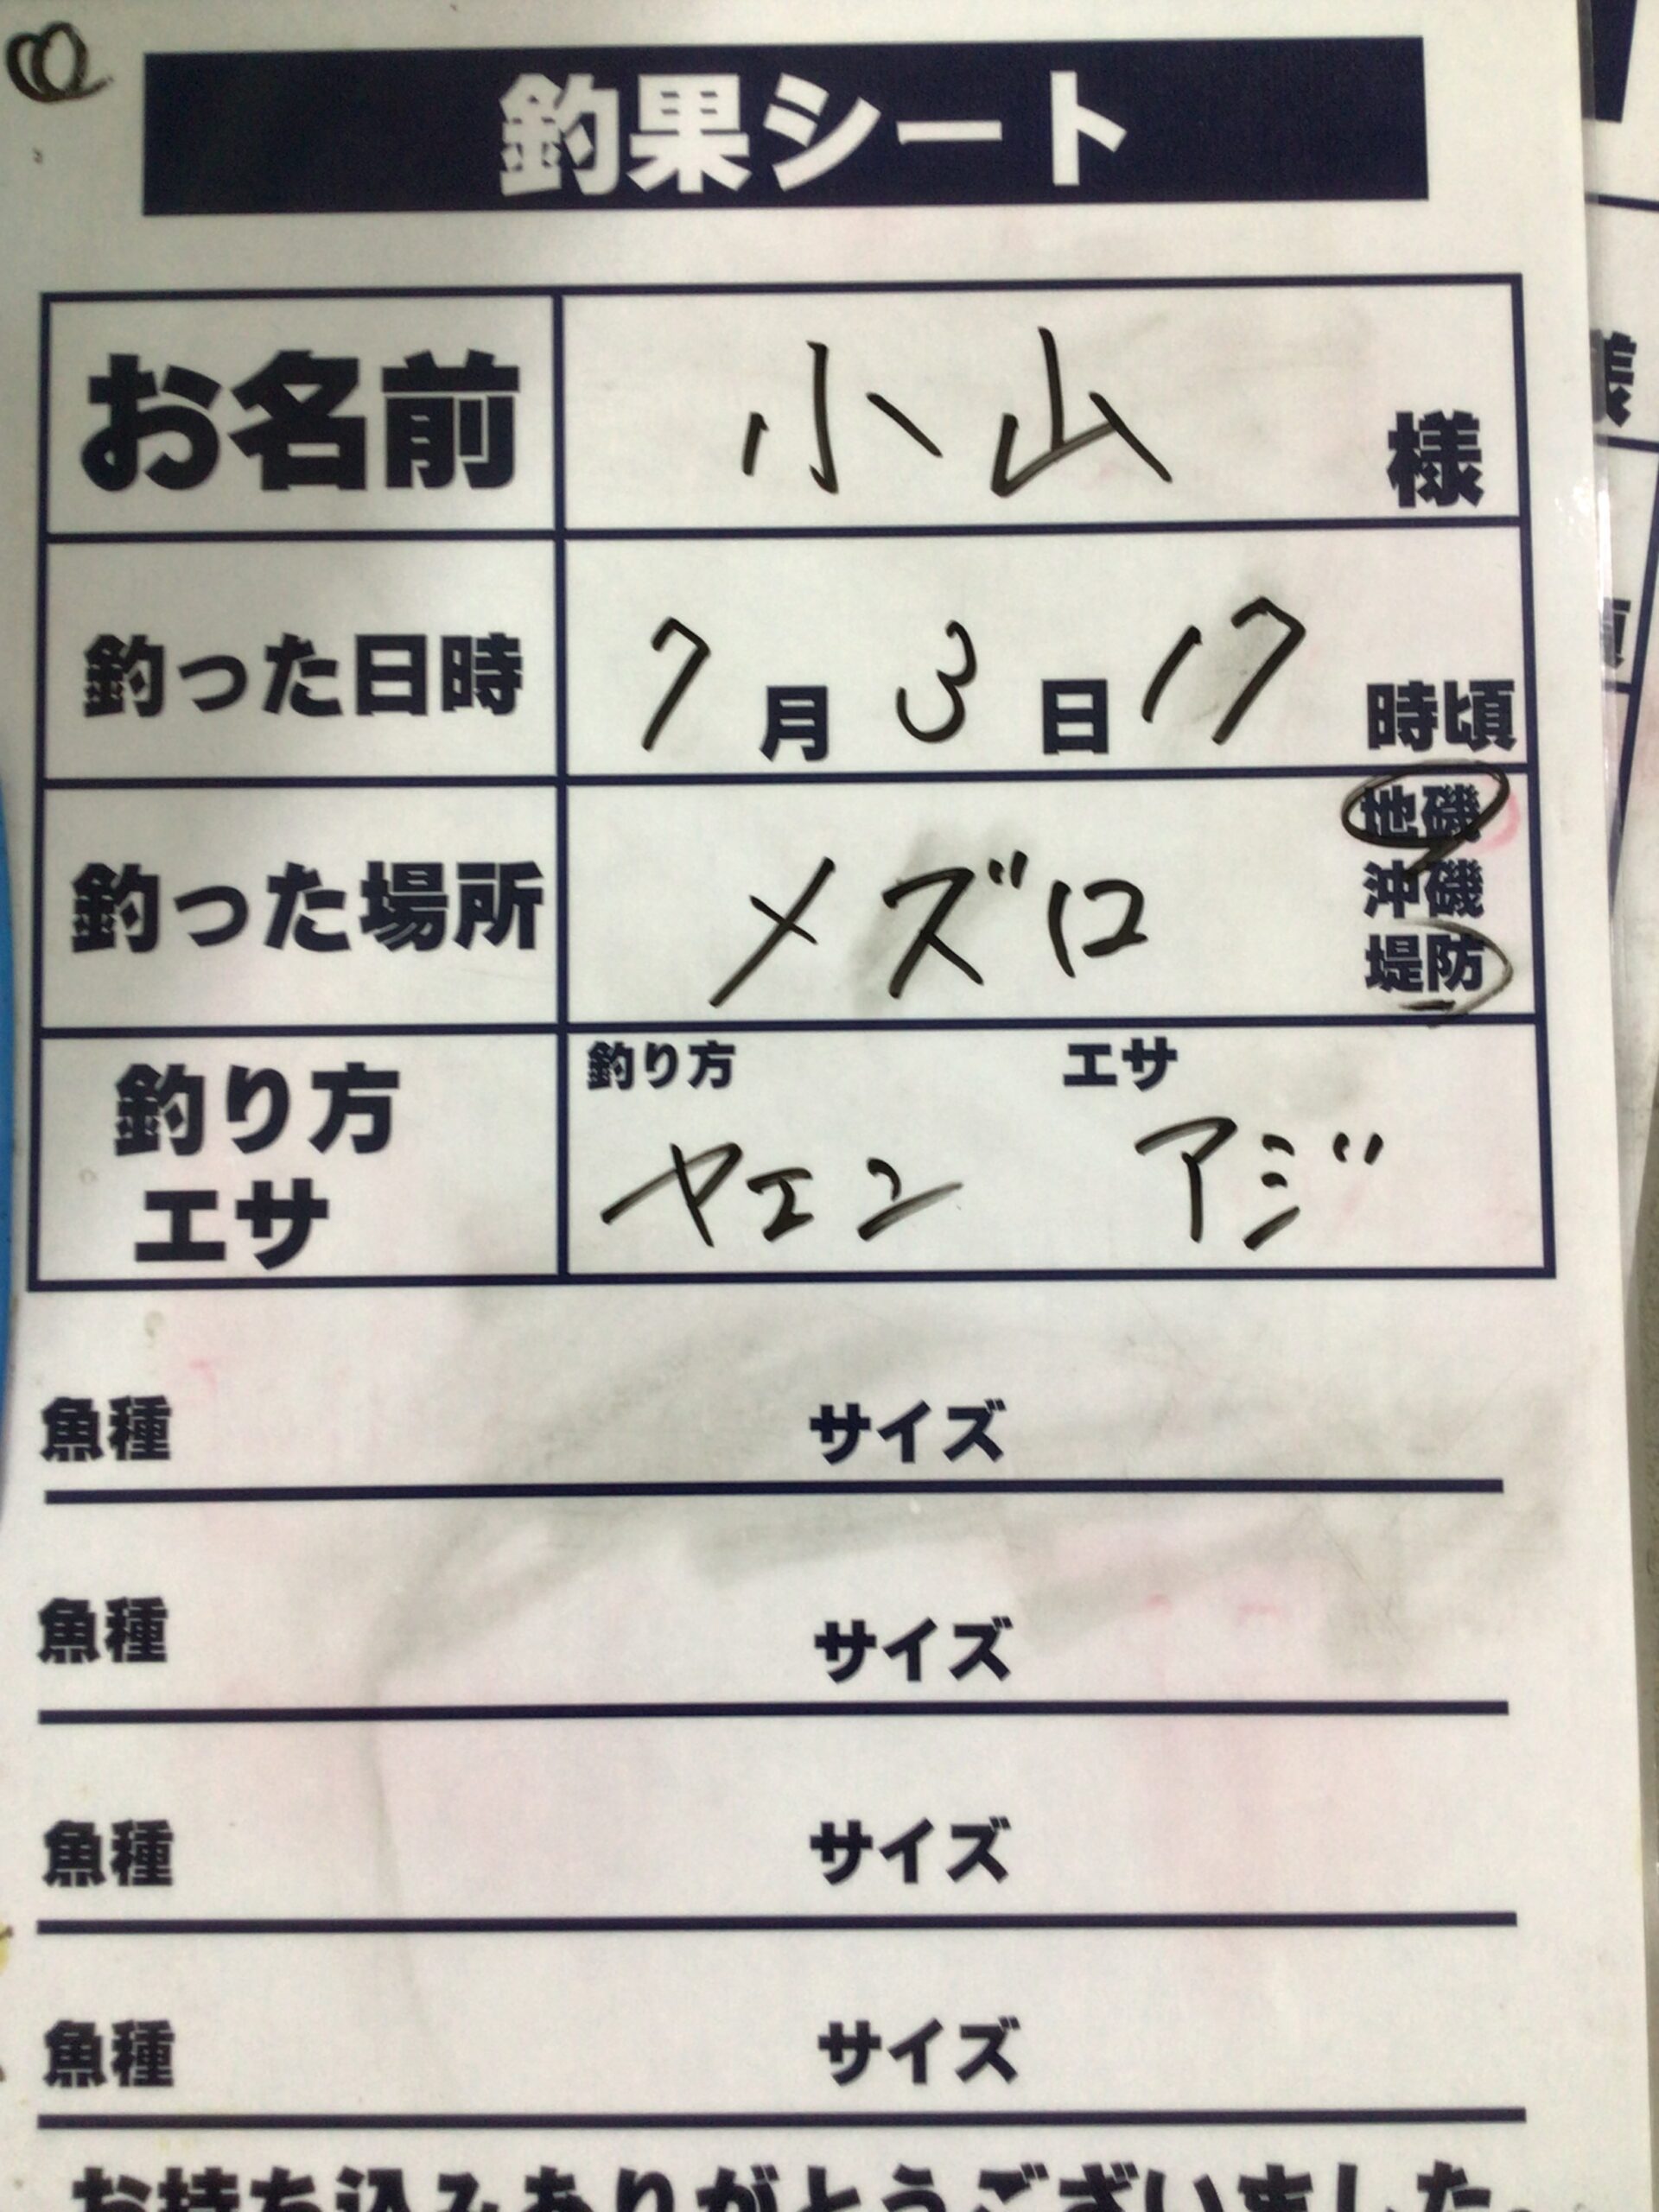 釣果シート
お名前 小山 様
釣った日時 7月3日17時頃
釣った場所 メズロ 地磯 沖磯 堤防
釣り方 エサ 釣り方 ヤエン エサ アジ
魚種 サイズ
魚種 サイズ
魚種 サイズ
魚種 サイズ
お持ち込みありがとうございました。